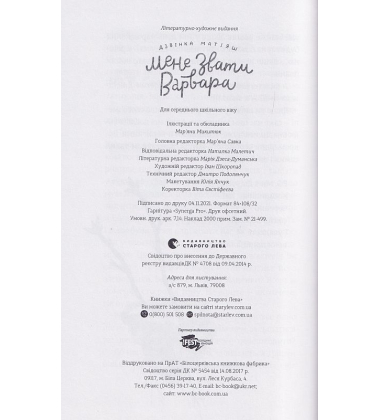 Літературно-художнє видання
ДЗВІНКА МАТІЯШ
Мене звати
Варвара
Для середнього шкільного віку
Ілюстрації та обкладинка
Мар'яна Микитюк
Головна редакторка Мар'яна Савка
Відповідальна редакторка Наталка Малетич
Літературна редакторка Марія Дзеса-Думанська
Художній редактор Іван Шкоропад
Технічний редактор Дмитро Подолянчук
Макетування Юлія Янчук
Коректорка Віта Євстафієва
Підписано до друку 04.11.2021. Формат 84×108/32
Гарнітура «Synerga Pro». Друк офсетний.
Умовн. друк. арк. 7,14. Наклад 2000 прим. Зам. № 21-499.
ВИДАВНИЦТВО
СТАРОГО ЛЕВА
Свідоцтво про внесення до Державного
реєстру видавців ДК № 4708 від 09.04.2014 р.
Адреса для листування:
а/с 879, м. Львів, 79008
Книжки «Видавництва Старого Лева»
Ви можете замовити на сайті starylev.com.ua
0(800) 501 508 spilnota@starlev.com.ua
Партнер видавництва
!FEST
Віддруковано на ПрАТ «Білоцерківська книжкова фабрика»
Свідоцтво серія ДК № 5454 від 14.08.2017 р.
09117, м. Біла Церква, вул. Леся Курбаса, 4.
Тел./Факс (0456) 39-17-40, E-mail: bc-book@ukr.net;
сайт: www.bc-book.com.ua